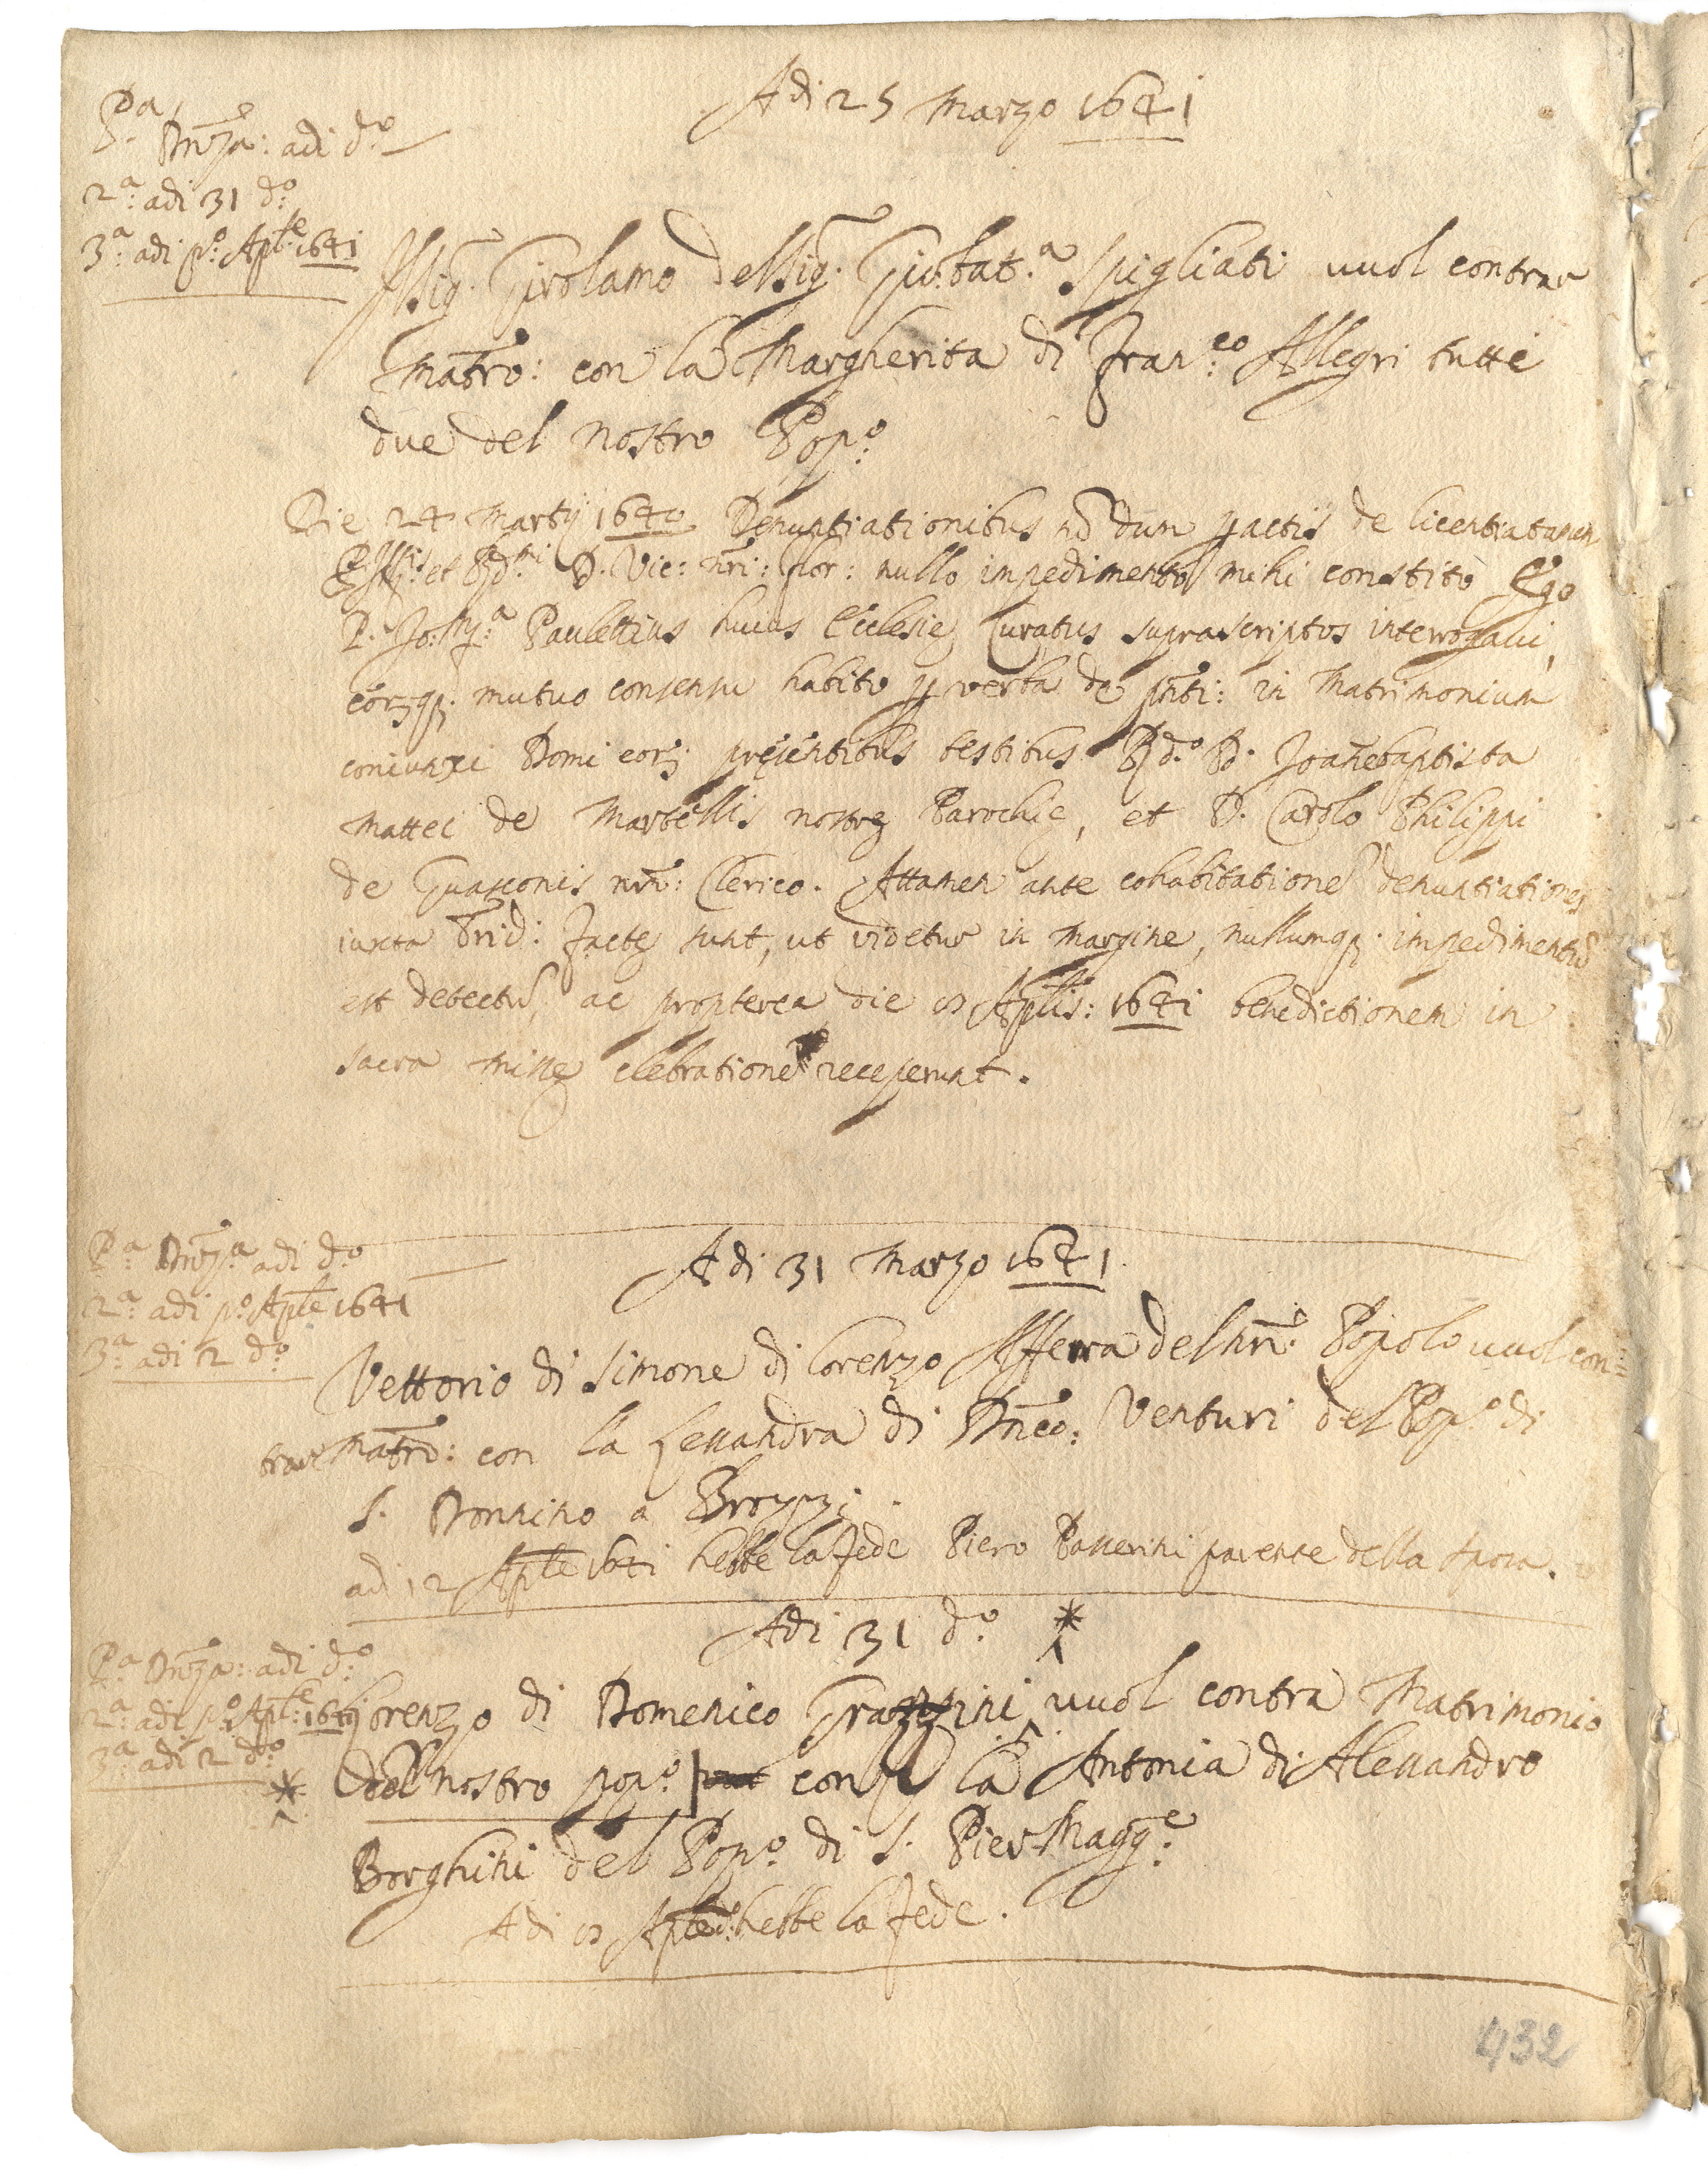 Adi 25 Marzo 1641
Pa: Dnza: adi do
2a: adi 31 do:
3a: adi po: Aple 1641
Il Sig. Girolamo del Sig. Gio:bat.a Spigliati vuol contrar
Matro: con la Margherita di Fran:co Allegri tutti
due del nostro Popo:
Die 24 Martij 1640 Denuntiationibus nō dum pactis de licentia tamen
et Rd.mi D. Vic: nri: flor: nullo impedimento mihi constito Ego
P. Jo: Paulettius huius Ecclesie Curatus suprascriptos interrogavi,
eorq. mutuo consensu habito p verba de pnti: in Matrimonium
coniunxi Domi eor; presentibus testibus Rdo. D. Joanebaptista
Mattei de Martellis nostre Parochie, et D. Carolo Philippi
de Guasconis nro: Clerico. Attamen ante cohabitationē denuntiationes
iuxta Trid: facte sunt, ut videtur in Margine, nullumq. impedimentū
est detectū, ac propterea die Aplis: 1641 benedictionem in
sacra misse celebratione receperunt.
Adi 31 Marzo 1641.
Pa: Dnza: adi do
2a: adi po: Aple 1641
3a: adi 2 do:
Vettorio di Simone di Lorenzo Afferra del nro: Popolo vuol con=
trar Matro: con la Lessandra di Dnico: Venturi del Popo: di
S. Donnino a Brozzi.
adi 12 Aple 1641 hebbe la fede Piero Passerini parente della sposa.
Adi 31 do: *
Pa: Dnza: adi do:
2a: adi po: Aple: 1641
3a: adi 2 do:
Lorenzo di Domenico Grazzini vuol contra Matrimonio
* del nostro popo: con la Antonia di Alessandro
Borghini del Popo: di S. Pier Magge:
Adi Aple do: hebbe la fede.
432